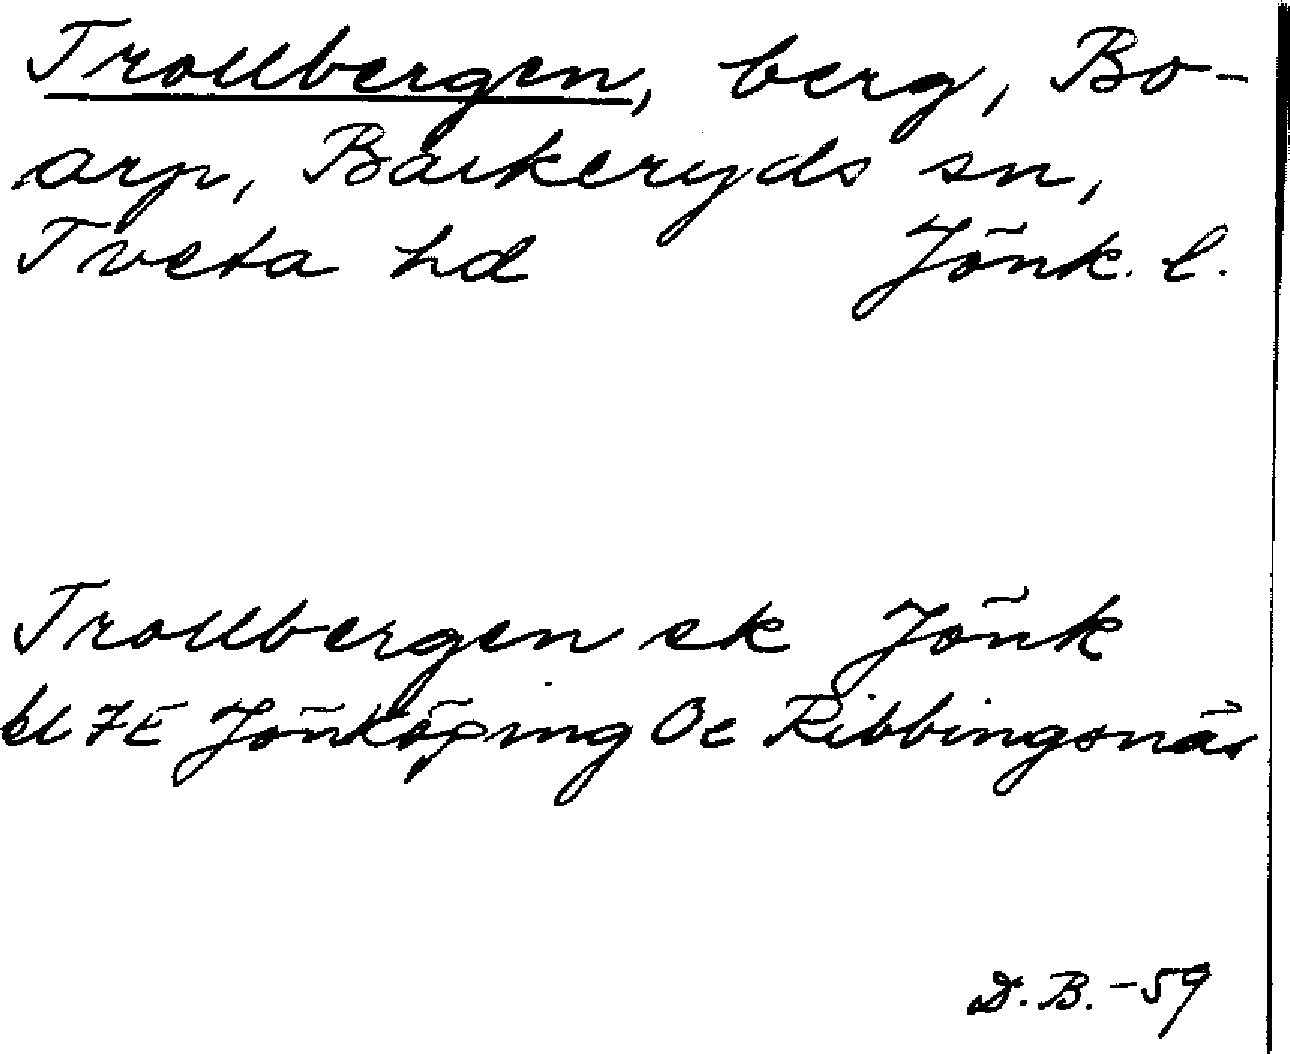 Trollbergen, berg, Bo-
arp, Barkeryds sn,
Tveta hd Jönk. l.
Trollbergen ek Jönk
bl 7E Jönköping Oc Ribbingsnäs
D.B. -59